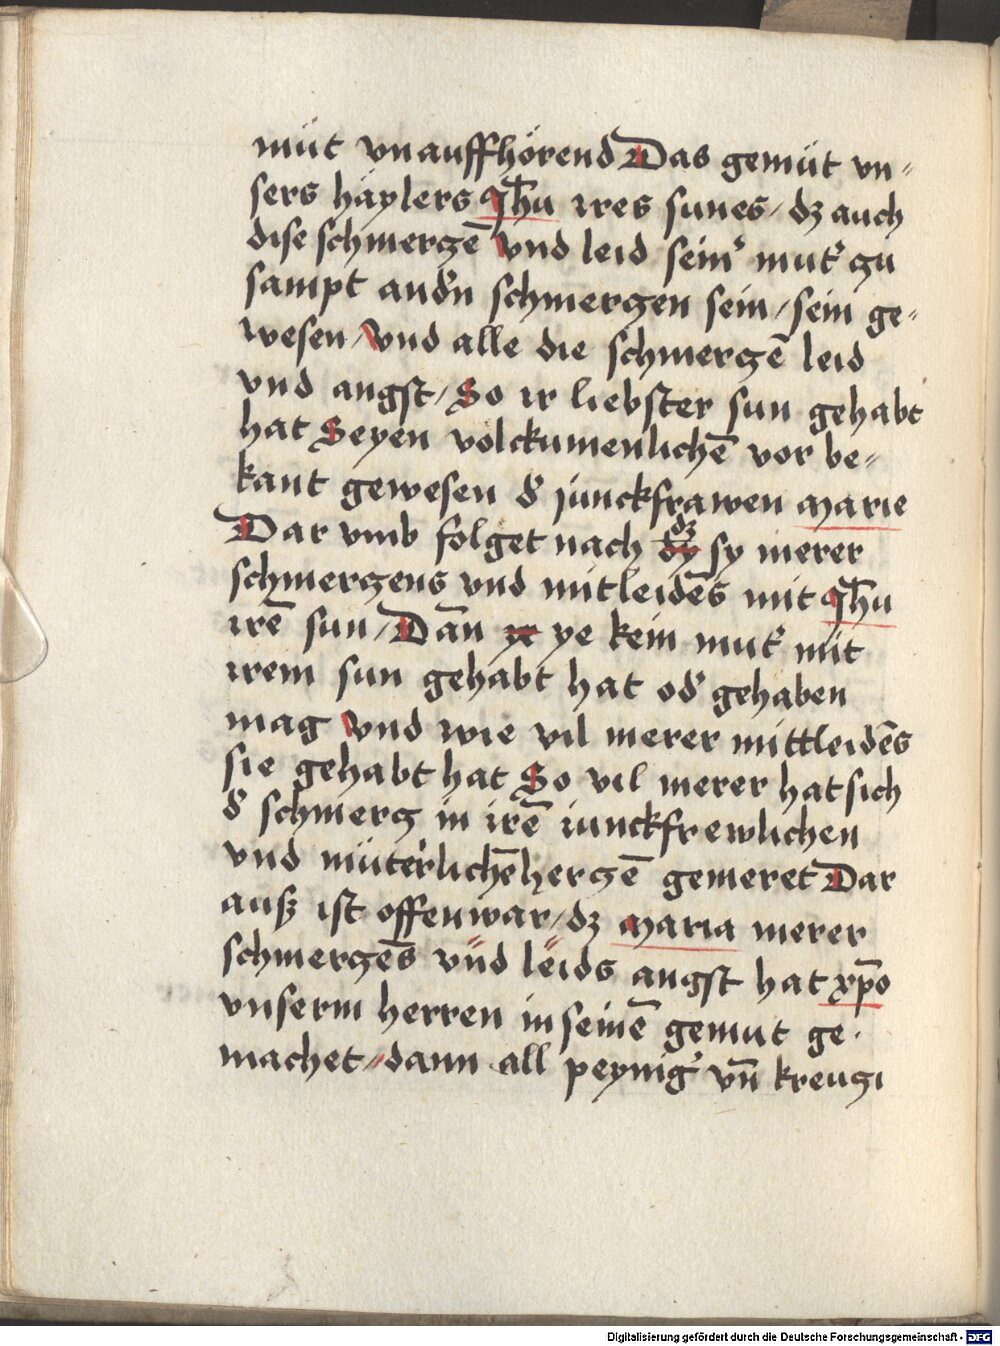 müt vnauffhörend Das gemüt vn⸗
sers häylers Jhu̅ ires sunes / dz auch
dise schmerczē vnd leid seinˀ mutˀ zu
sampt andˀn schmerczen sein / sein ge⸗
wesen / vnd alle die schmerczē leid
vnd angst / So ir liebster sun gehabt
hat Seyen volckumenlichē vor be⸗
kant gewesen dˀ junckfrawen marie
Dar vmb folget nach dz sy merer
schmerczens vnd mitleidēs mit Jhu̅
irē sun / Dan̄ ye kein mutˀ mit
irem sun gehabt hat odˀ gehaben
mag vnd wie vil merer mittleidēs
sie gehabt hat So vil merer hat sich
dˀ schmercz in irē iunckfrewlichen
vnd müterlichē herczē gemeret Dar
auß ist offenwar / dz maria merer
schmerczēs vnd leids angst hat xp̄o
vnserm herren in seinē gemut ge⸗
machet ⸗ dann all peynigˀ vn̄ kreuczi
Digitalisierung gefördert durch die Deutsche Forschungsgemeinschaft - DFG